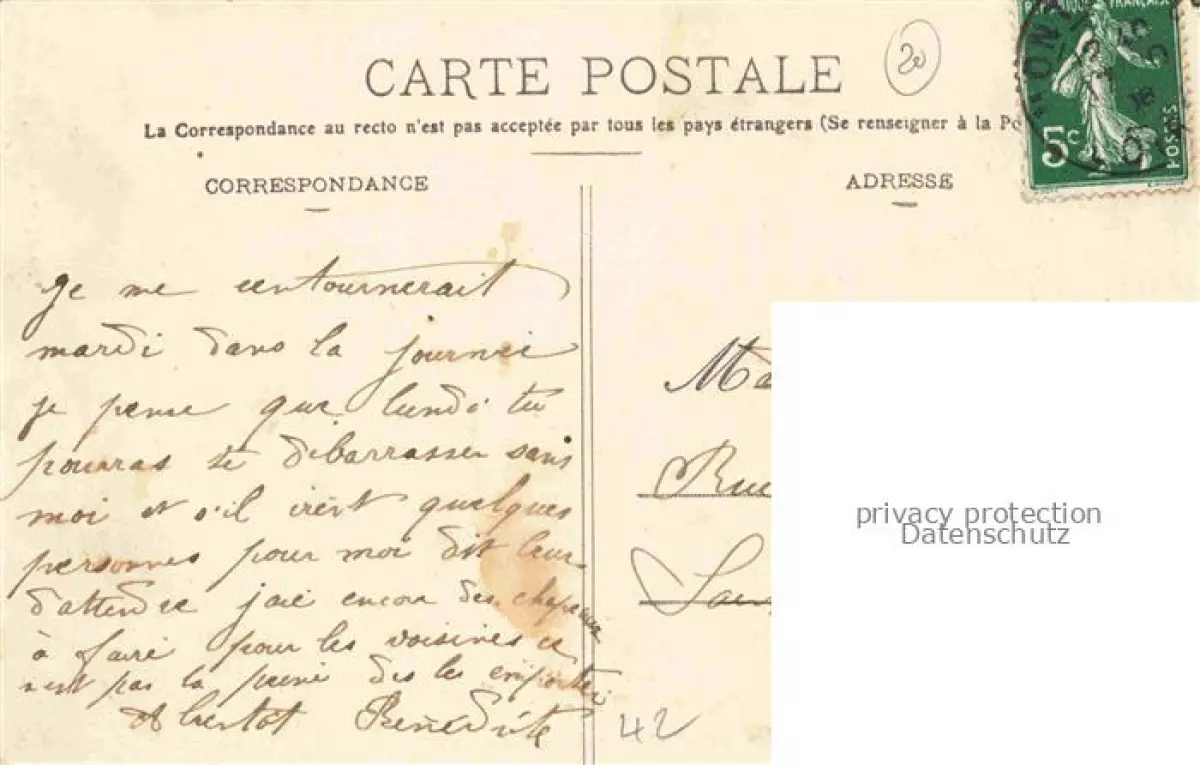 RÉPUBLIQUE FRANÇAISE
20
CARTE POSTALE
La Correspondance au recto n'est pas acceptée par tous les pays étrangers (Se renseigner à la Po
5c
POSTES
CORRESPONDANCE
ADRESSE
Je me entournerait
mardi dans la journée
je pense que lundi tu
pourras te débarrasser sans
moi et s'il vient quelques
personnes pour moi dit leur
d'attendre jaie encore des chapeaux
à faire pour les voisines ce
nest pas la peine des les emporter
A bientôt Bénédicte
Ma
Rue
privacy protection
Datenschutz
42